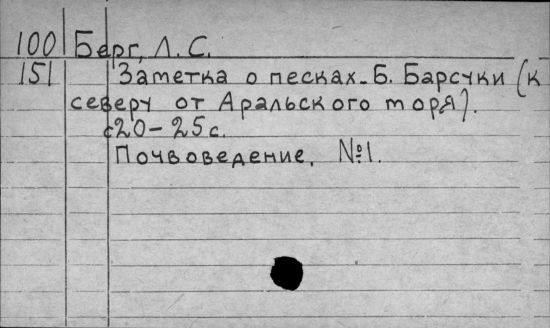 100 Берг, Л. С.
151 Заметка о песках Б. Барсуки (к
северу от Аральского моря).
с20-25с.
Почвоведение, №1.